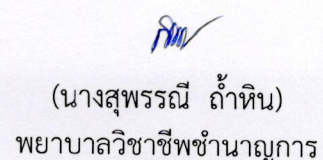 (นางสุพรรณี ถ้ำหิน)
พยาบาลวิชาชีพชำนาญการ